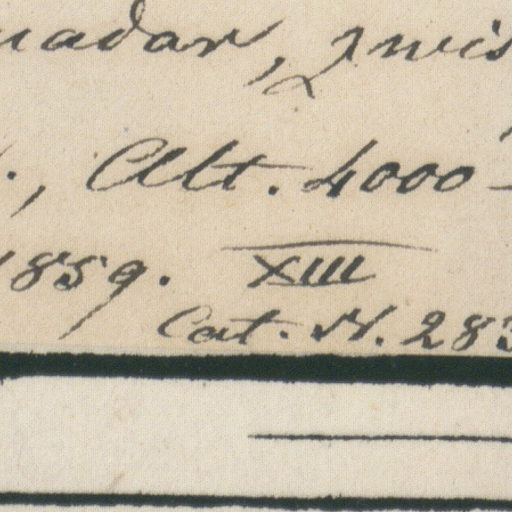 uadar, zwis
., Alt. 4000-
1859. XIII
Cat. N. 283